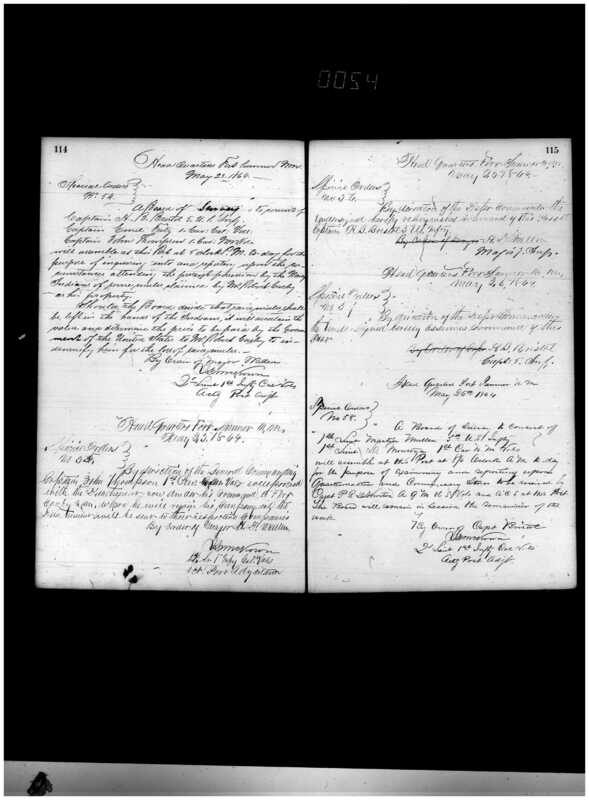 0054
114
Head Quarters Fort Sumner N.M.
May 21. 1864.
Special Orders
No. 54.
A Board of Survey to consist of
Captain H. B. Bristol 5. U.S. Inf.
Captain Cav. Vol.
Captain John Thompson 1. Cav.
will assemble at this Post at o'clock P.M. to-day for the
purpose of inquiring into and reporting upon the cir-
cumstances attending the present possession by the Navajo
Indians of claimed by Mr. Robert
as his property.
Should the Board decide that shall
be left in the hands of the Indians, it will ascertain the
value and determine the price to be paid by the Govern-
ment of the United States to Mr. Robert to in-
demnify him for the loss of
By Order of Major Wallen
2d Lieut 1st Infty Cal Vols
Actg Post Adjt
Head Quarters Fort Sumner N.M.
May 23. 1864.
Special Orders
No.
By direction of the General Commanding
Captain John Thompson 1st Cav. Vols will proceed
with the Detachment now under his command to Fort
where he will rejoin his company, all the
men will be sent to their respective companies
By order of Major H. D. Wallen
2d Lt 1 Infy Cal. Vols
Act. Post Adjutant
115
Head Quarters Fort Sumner N.M.
May 1864.
Special Orders
No. 56
By direction of the Dept. Commander the
undersigned hereby relinquishes command of this Post to
Captain H. B. Bristol 5 U.S. Infty.
H. D. Wallen
Major 7. Infy.
Head Quarters Fort Sumner N.M.
May 26, 1864
Special Orders
No. 57
By direction of the Dept. Commander
the undersigned hereby assumes command of this
Post
H. B. Bristol
Capt. 5. Inf.
Head Quarters Fort Sumner N.M.
May 26th 1864
Special Orders
No 58.
A Board of Survey to consist of
1st Lieut Martin Mullen 5th U.S. Infty
1st Lieut 1st Cav N.M. Vols
will assemble at this Post at o'clock A.M. to day
for the purpose of examining and reporting upon
Quartermaster and Commissary Stores to be received by
Capt P. A. Q. M. U.S. Vols and A.C.S. at this Post.
The Board will remain in session the remainder of the
week
By Order of Capt Bristol
2d Lieut 1st Infty Cal Vols
Actg Post Adjt